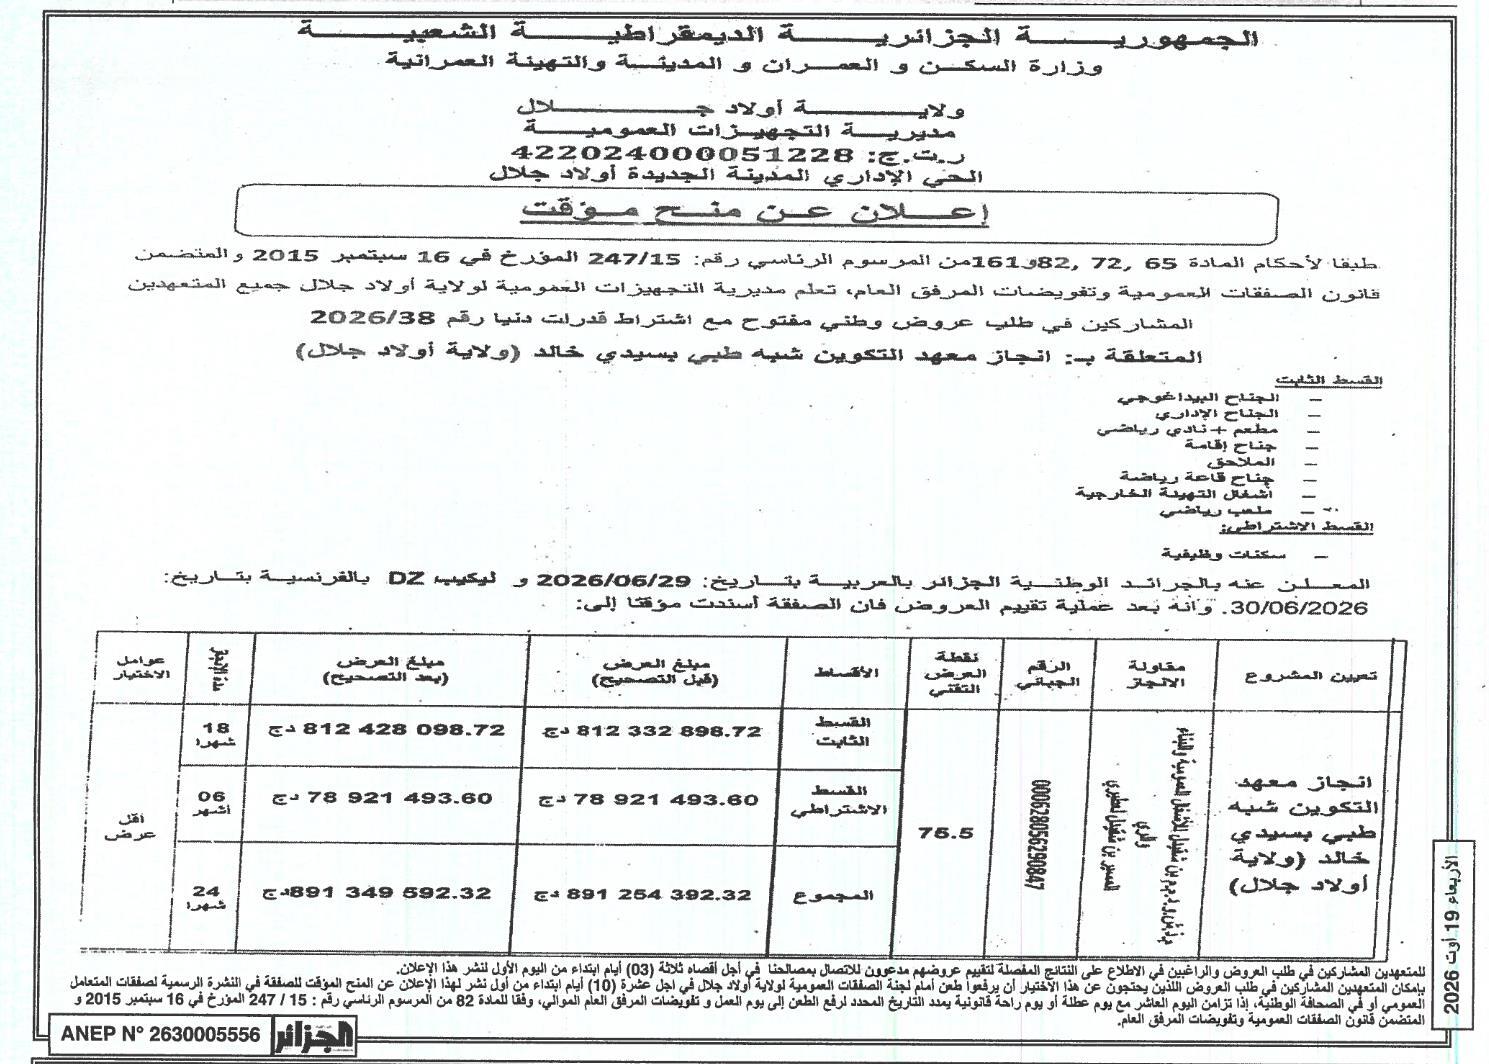 الجمهوريـــة الجزائريـــة الديمقراطيـــة الشعبيـــة
وزارة السكـن و العمـران و المدينـة والتهيئة العمرانية
ولايـــة أولاد جـــلال
مديريـة التجهيـزات العموميـة
ر.ت.ج: 422024000051228
الحي الإداري المدينة الجديدة أولاد جلال
إعـلان عـن منـح مـؤقت
طبقا لأحكام المادة 65 ,72 ,82و161من المرسوم الرئاسي رقم: 247/15 المؤرخ في 16 سبتمبر 2015 والمتضمن
قانون الصفقات العمومية وتفويضات المرفق العام، تعلم مديرية التجهيزات العمومية لولاية أولاد جلال جميع المتعهدين
المشاركين في طلب عروض وطني مفتوح مع اشتراط قدرات دنيا رقم 2026/38
المتعلقة بـ: انجاز معهد التكوين شبه طبي بسيدي خالد (ولاية أولاد جلال)
القسط الثابت
– الجناح البيداغوجي
– الجناح الإداري
– مطعم + نادي رياضي
– جناح إقامة
– الملاحق
– جناح قاعة رياضة
– أشغال التهيئة الخارجية
– ملعب رياضي
القسط الاشتراطي:
– سكنات وظيفية
المعلـن عنه بالجرائد الوطنـية الجزائر بالعربيـة بتـاريخ: 2026/06/29 و ليكيب DZ بالفرنسية بتاريخ:
30/06/2026. وانه بعد عملية تقييم العروض فان الصفقة أسندت مؤقتا إلى:
تعيين المشروع
مقاولة الانجاز
الرقم الجبائي
نقطة العرض التقني
الأقساط
مبلغ العرض (قبل التصحيح)
مبلغ العرض (بعد التصحيح)
مدة الإنجاز
عوامل الاختيار
انجاز معهد
التكوين شبه
طبي بسيدي
خالد (ولاية
أولاد جلال)
الأشغال العمومية والبناء
والري
المسير بن شنيول لخضر
000628056290847
75.5
القسط الثابت
812 332 898.72 دج
812 428 098.72 دج
18 شهرا
القسط الاشتراطي
78 921 493.60 دج
78 921 493.60 دج
06 أشهر
المجموع
891 254 392.32 دج
891 349 592.32دج
24 شهرا
أقل عرض
للمتعهدين المشاركين في طلب العروض والراغبين في الاطلاع على النتائج المفصلة لتقييم عروضهم مدعوون للاتصال بمصالحنا في أجل أقصاه ثلاثة (03) أيام ابتداء من اليوم الأول لنشر هذا الإعلان.
بإمكان المتعهدين المشاركين في طلب العروض اللذين يحتجون عن هذا الاختيار أن يرفعوا طعن أمام لجنة الصفقات العمومية لولاية أولاد جلال في اجل عشرة (10) أيام ابتداء من أول نشر لهذا الإعلان عن المنح المؤقت للصفقة في النشرة الرسمية لصفقات المتعامل
العمومي أو في الصحافة الوطنية، إذا تزامن اليوم العاشر مع يوم عطلة أو يوم راحة قانونية يمدد التاريخ المحدد لرفع الطعن إلى يوم العمل الموالي، وفقا للمادة 82 من المرسوم الرئاسي رقم : 15 / 247 المؤرخ في 16 سبتمبر 2015 و
المتضمن قانون الصفقات العمومية وتفويضات المرفق العام.
ANEP N° 2630005556
الجزائر
الأربعاء 19 أوت 2026